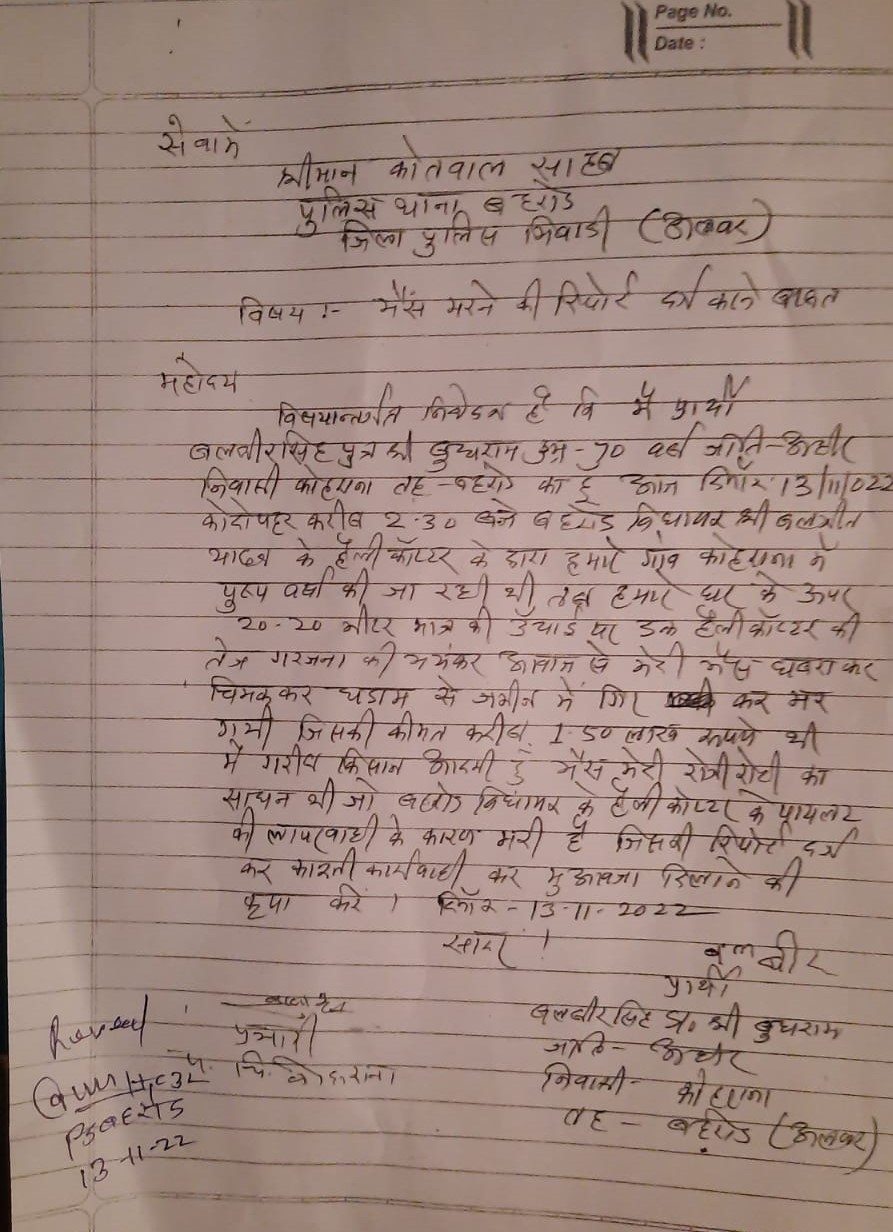 Page No.
Date :
सेवामें
श्रीमान कोतवाल साहब
पुलिस थाना बहरोड
जिला पुलिस भिवाडी (अलवर)
विषय :- भैंस मरने की रिपोर्ट दर्ज कराने बाबत
महोदय
विषयान्तर्गत निवेदन है कि मैं प्रार्थी
बलबीरसिंह पुत्र श्री बुधराम उम्र - 70 वर्ष जाति - अहीर
निवासी कोहराना तह - बहरोड का हूं आज दिनाँक 13/11/022
को दोपहर करीब 2-30 बजे बहरोड विधायक श्री बलजीत
यादव के हैलीकॉप्टर के द्वारा हमारे गांव कोहराना में
पुष्प वर्षा की जा रही थी हमारे घर के ऊपर
20-20 मीटर मात्र की उंचाई पर हैलीकॉप्टर की
तेज गरजना की भयंकर आवाज से मेरी भैंस घबरा कर
चिमककर धडाम से जमीन में गिर कर मर
गयी जिसकी कीमत करीब 1.50 लाख रूपये थी
मैं गरीब किसान आदमी हूं भैंस मेरी रोजी रोटी का
साधन थी जो बहरोड विधायक के हैलीकोप्टर के पायलट
की लापरवाही के कारण मरी है जिसकी रिपोर्ट दर्ज
कर कानूनी कार्यवाही कर मुआवजा दिलाने की
कृपा करें । दिनाँक - 13-11-2022
सादर !
बलबीर
प्रार्थी
बलबीरसिंह पु. श्री बुधराम
जाति - अहीर
निवासी - कोहराना
तह - बहरोड (अलवर)
प्रभारी
कोहराना
HC32
PS बहरोड
13-11-22